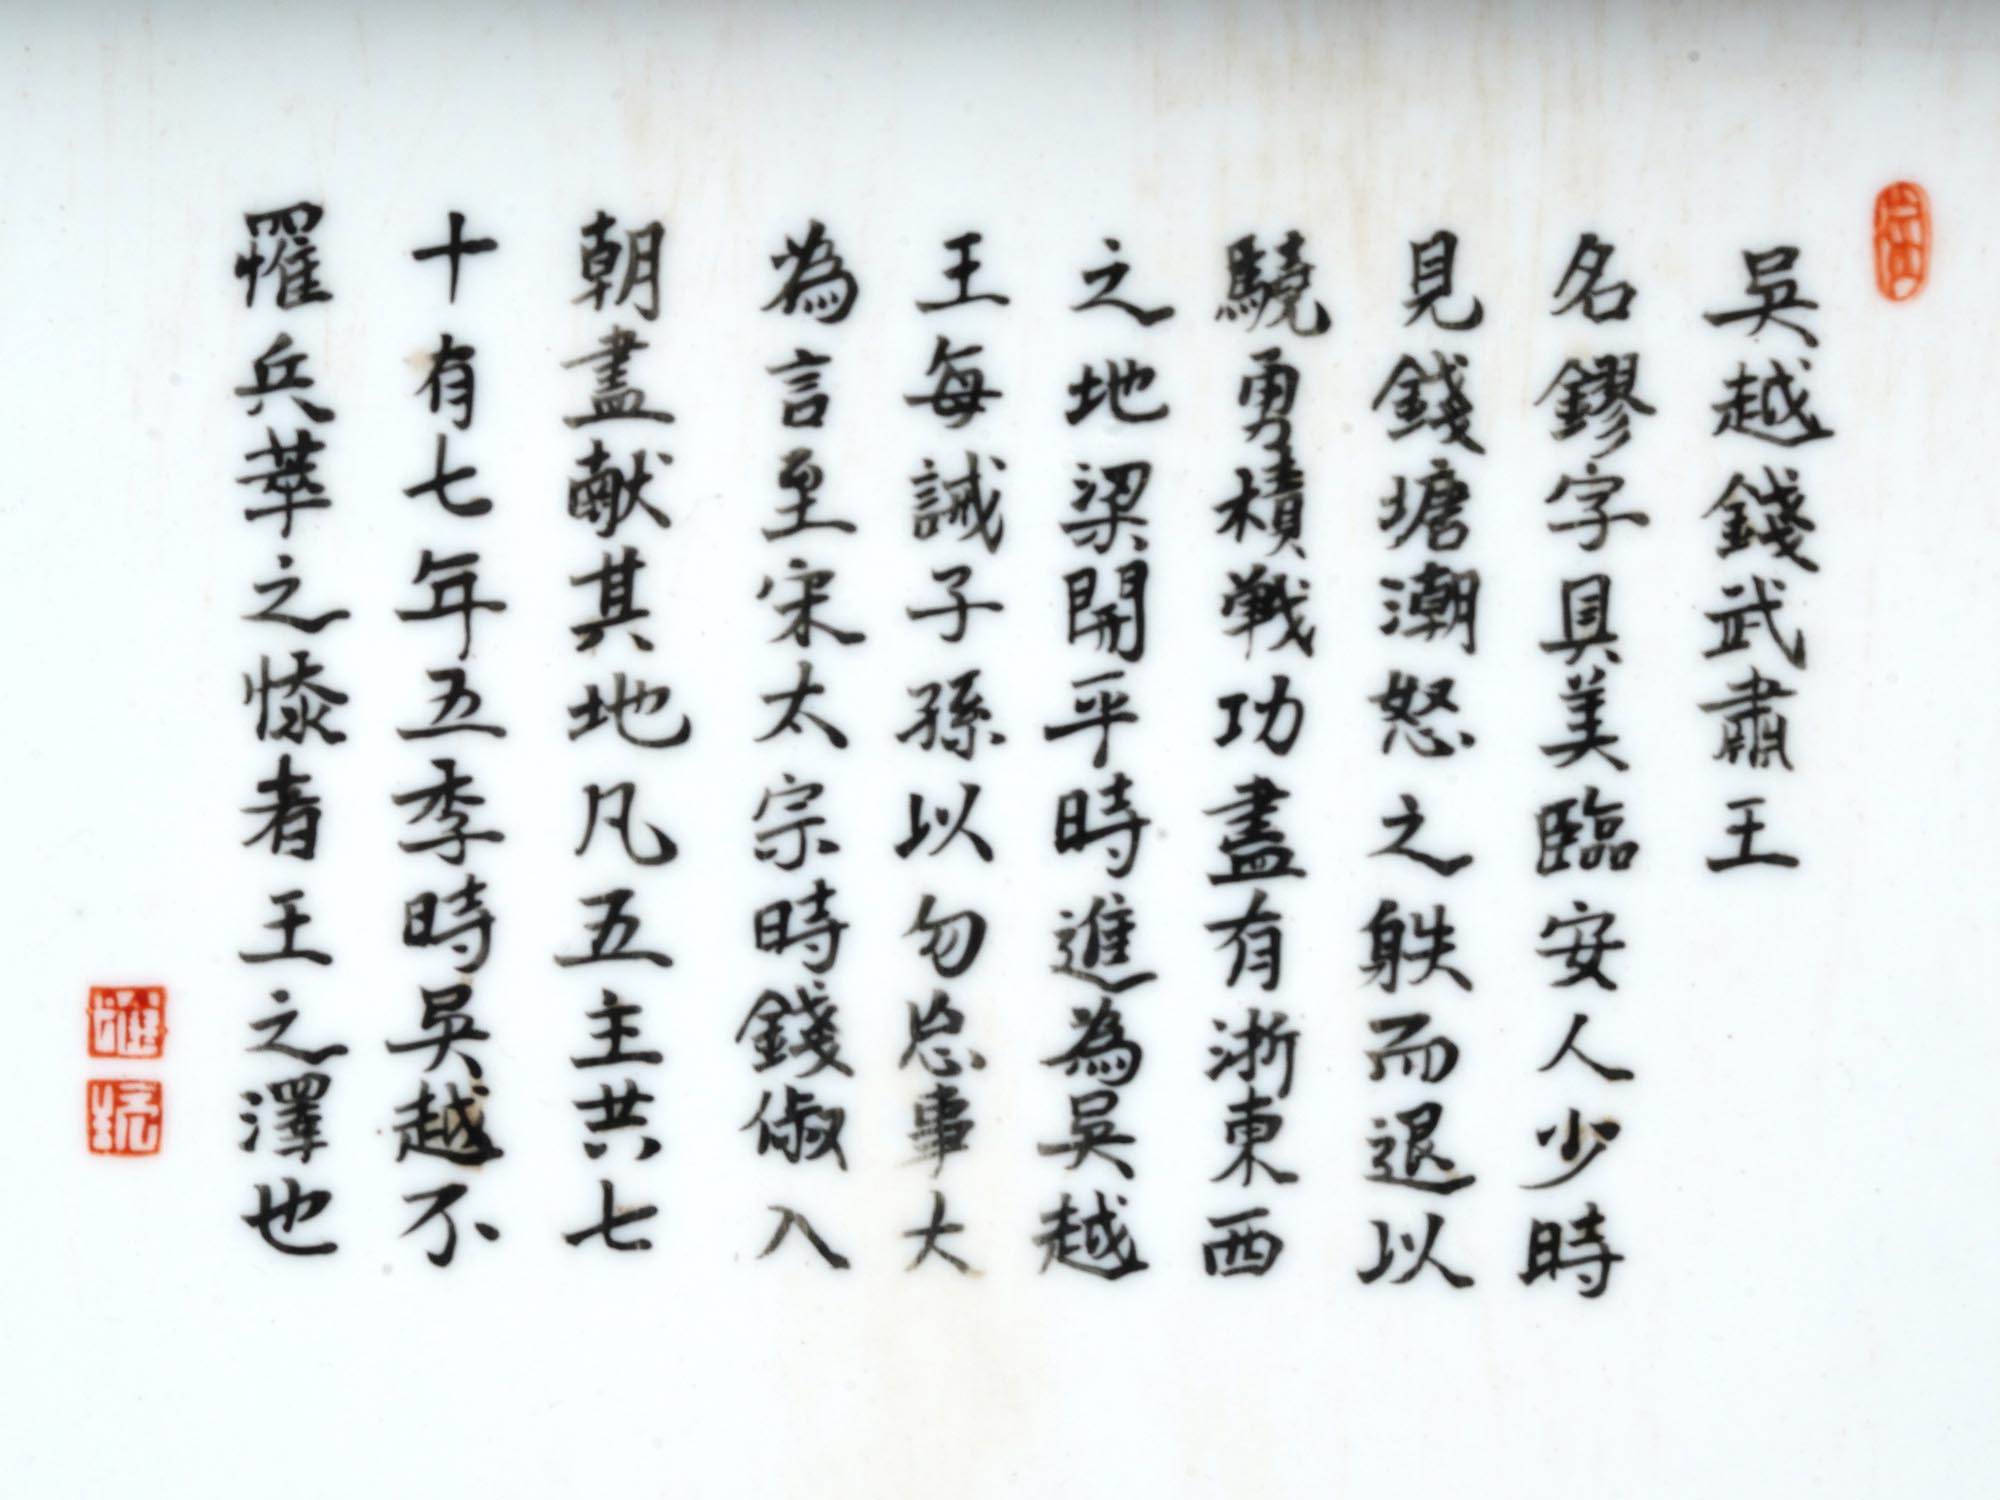 吳越錢武肅王
名鏐字具美臨安人少時
見錢塘潮怒之躰而退以
驍勇積戰功盡有浙東西
之地梁開平時進為吳越
王每誡子孫以勿忘事大
為言至宋太宗時錢俶入
朝盡献其地凡五主共七
十有七年五季時吳越不
罹兵革之慘者王之澤也